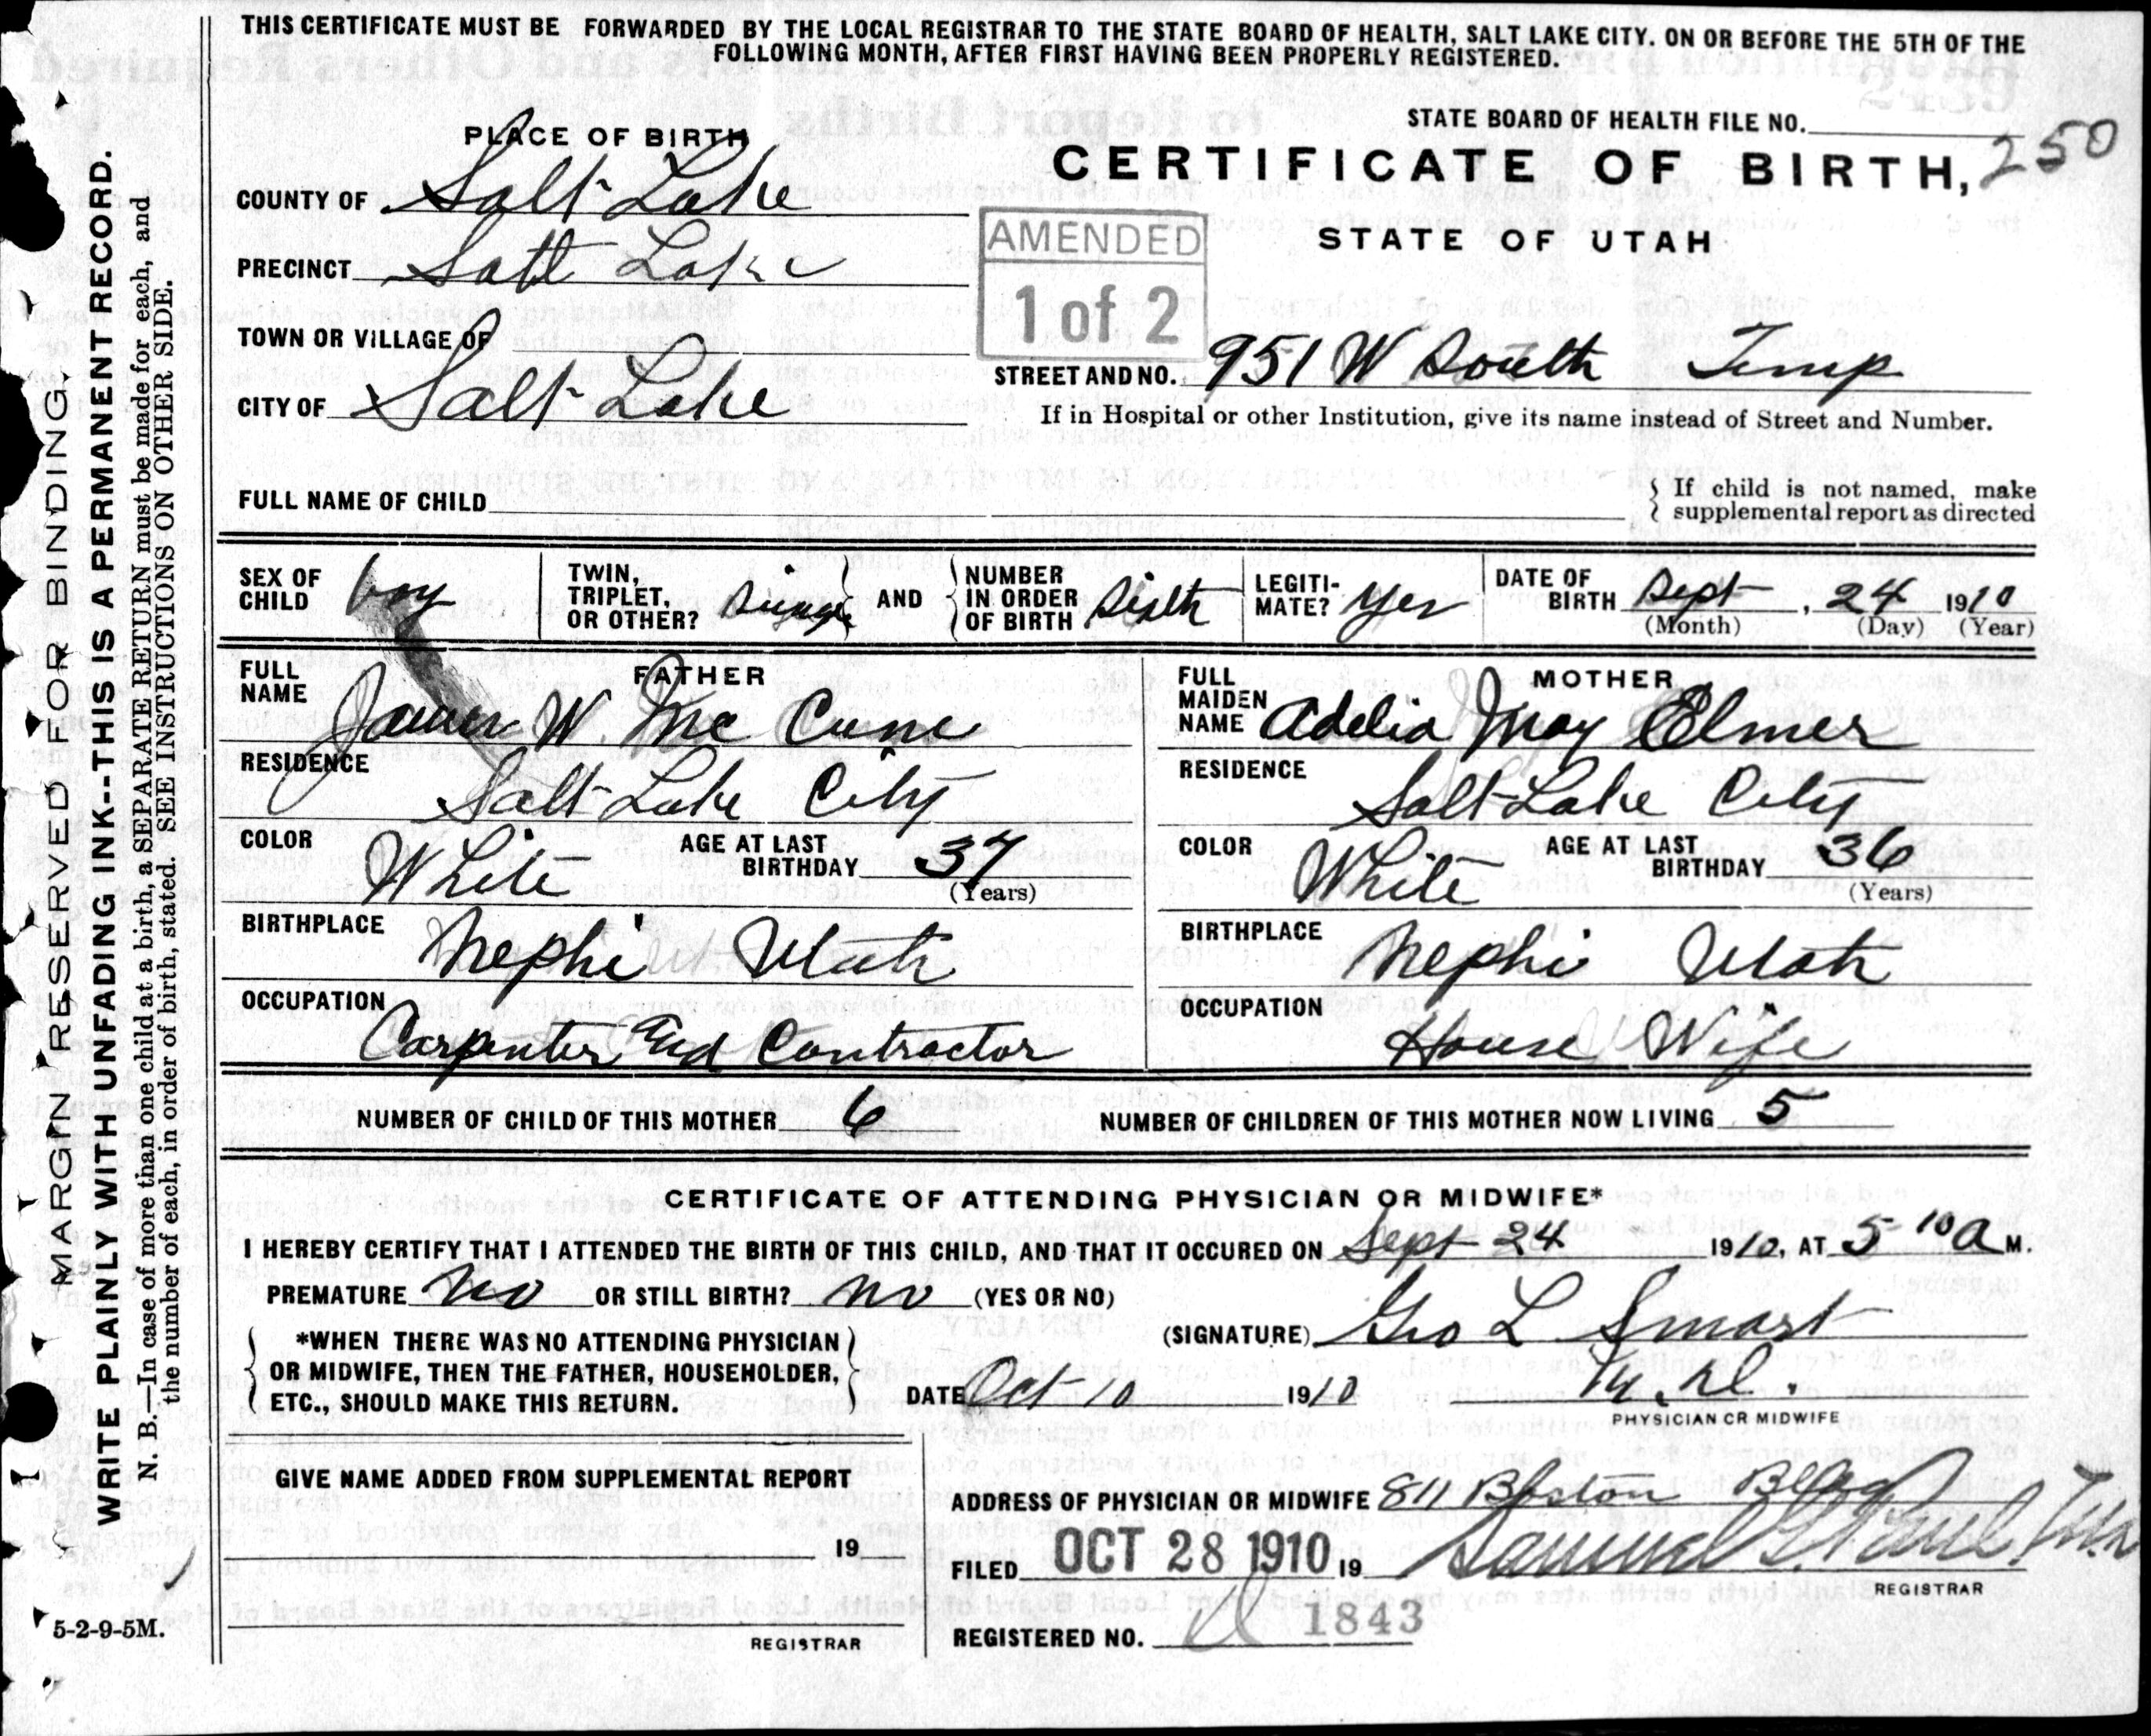 THIS CERTIFICATE MUST BE FORWARDED BY THE LOCAL REGISTRAR TO THE STATE BOARD OF HEALTH, SALT LAKE CITY. ON OR BEFORE THE 5TH OF THE
FOLLOWING MONTH, AFTER FIRST HAVING BEEN PROPERLY REGISTERED.
MARGIN RESERVED FOR BINDING.
WRITE PLAINLY WITH UNFADING INK--THIS IS A PERMANENT RECORD.
N. B.—In case of more than one child at a birth, a SEPARATE RETURN must be made for each, and
the number of each, in order of birth, stated. SEE INSTRUCTIONS ON OTHER SIDE.
5-2-9-5M.
PLACE OF BIRTH
COUNTY OF Salt Lake
PRECINCT Salt Lake
TOWN OR VILLAGE OF
CITY OF Salt Lake
STATE BOARD OF HEALTH FILE NO. 250
CERTIFICATE OF BIRTH,
STATE OF UTAH
AMENDED
1 of 2
STREET AND NO. 951 W South Temp
If in Hospital or other Institution, give its name instead of Street and Number.
FULL NAME OF CHILD
If child is not named, make
supplemental report as directed
SEX OF CHILD boy
TWIN, TRIPLET, OR OTHER? Single
AND
NUMBER IN ORDER OF BIRTH Sixth
LEGITI-MATE? Yes
DATE OF BIRTH Sept, 24 1910
(Month) (Day) (Year)
FATHER
FULL NAME James W. Mc Cune
RESIDENCE Salt Lake City
COLOR White
AGE AT LAST BIRTHDAY 37
(Years)
BIRTHPLACE Nephi Utah
OCCUPATION Carpenter and Contractor
MOTHER
FULL MAIDEN NAME Adelia May Elmer
RESIDENCE Salt Lake City
COLOR White
AGE AT LAST BIRTHDAY 36
(Years)
BIRTHPLACE Nephi Utah
OCCUPATION House Wife
NUMBER OF CHILD OF THIS MOTHER 6
NUMBER OF CHILDREN OF THIS MOTHER NOW LIVING 5
CERTIFICATE OF ATTENDING PHYSICIAN OR MIDWIFE*
I HEREBY CERTIFY THAT I ATTENDED THE BIRTH OF THIS CHILD, AND THAT IT OCCURED ON Sept 24 1910, AT 5 10 A M.
PREMATURE No OR STILL BIRTH? No (YES OR NO)
*WHEN THERE WAS NO ATTENDING PHYSICIAN
OR MIDWIFE, THEN THE FATHER, HOUSEHOLDER,
ETC., SHOULD MAKE THIS RETURN.
(SIGNATURE) Geo L Smart
DATE Oct 10 1910 M.D.
PHYSICIAN OR MIDWIFE
GIVE NAME ADDED FROM SUPPLEMENTAL REPORT
19
REGISTRAR
ADDRESS OF PHYSICIAN OR MIDWIFE 811 Boston Bldg
FILED OCT 28 1910 19 Samuel G. Paul
REGISTRAR
REGISTERED NO. 1843